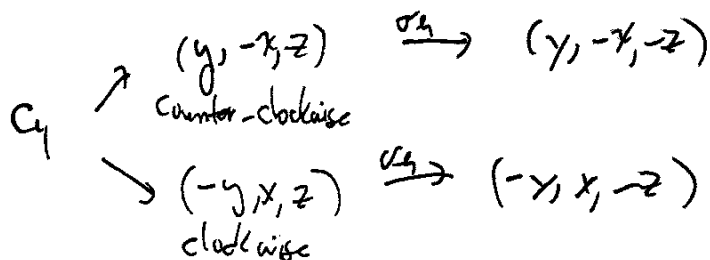 (y, -x, z) σh → (y, -x, -z)
counter-clockwise
C4
(-y, x, z) σh → (-y, x, -z)
clockwise